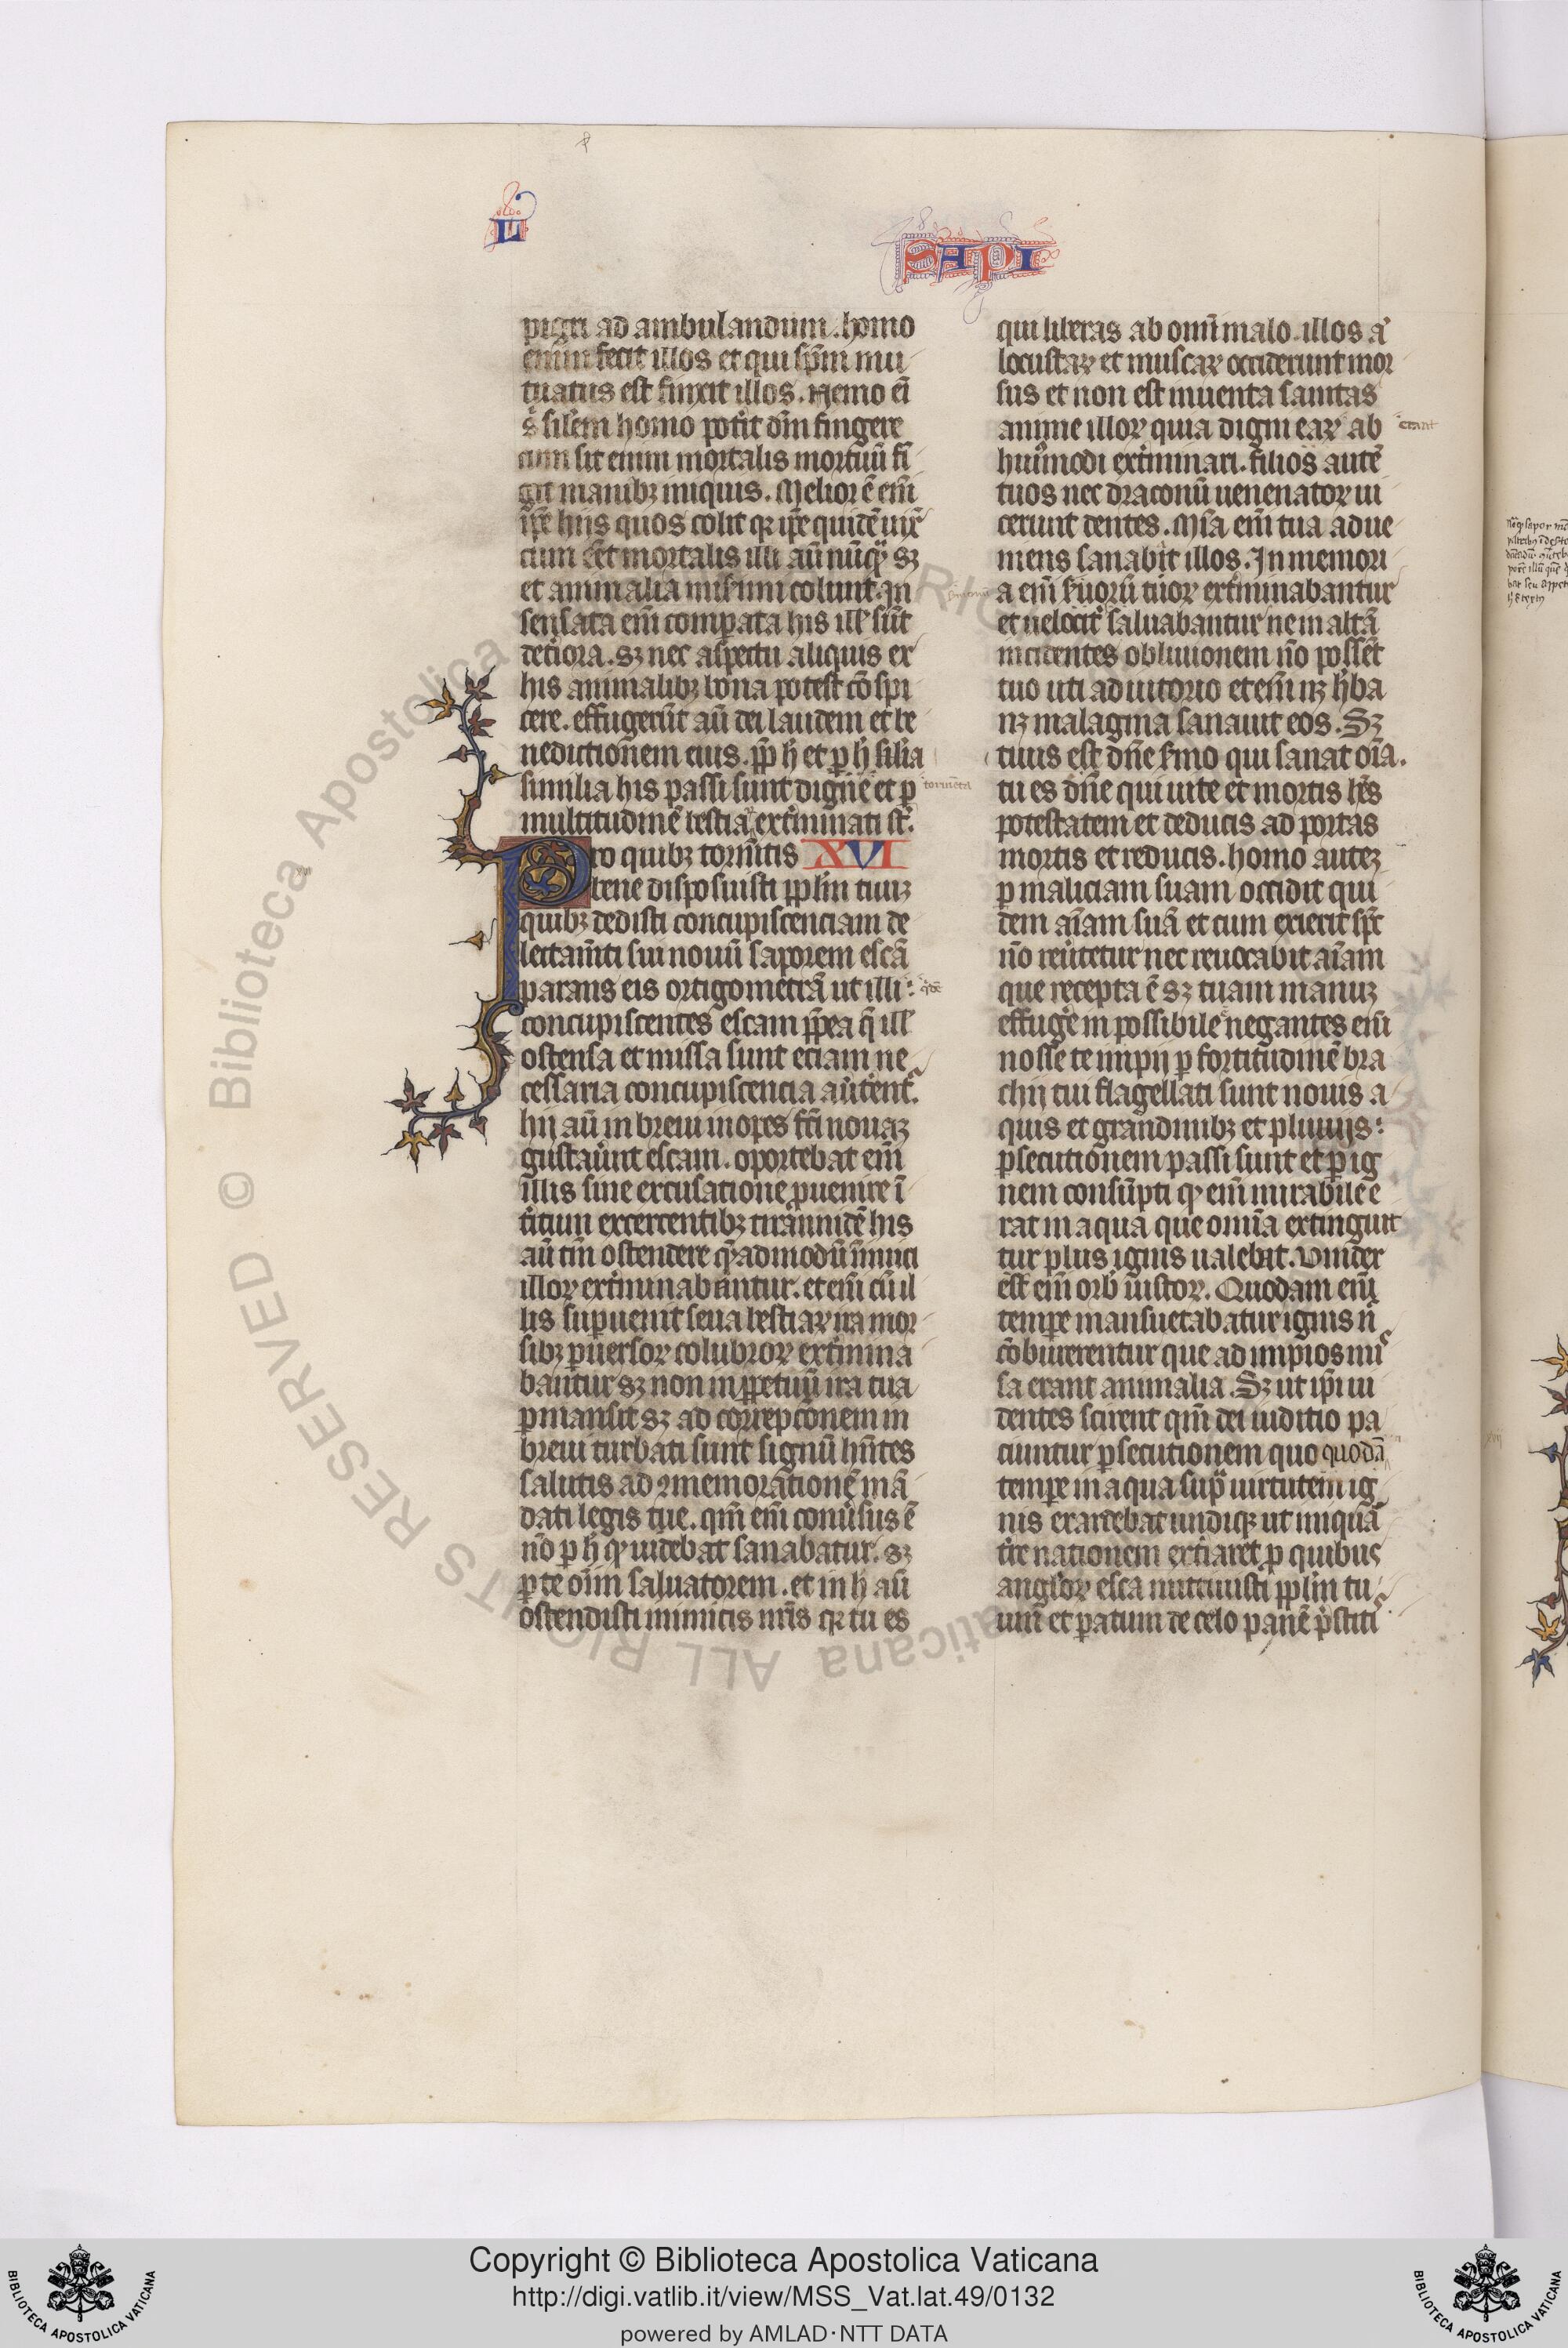 L
SAPI
pigri ad ambulandum. homo
enim fecit illos et qui sp̄m mu
tuatus est finxit illos. Nemo ei̅
s̉ silem̄ homo pot̉it dm̄ fingere
cum sit enim mortalis mortuū fi̅
git manibꝫ iniquis. Melior ē em̄
ip̄e hijs quos colit qꝛ ip̄e quidē uix̄
cum eēt mortalis illi aū nūqͣ sꝫ
et animalia miserīmi colunt. in
sensata em̄ comparata his ill̉ sūt
deteriora. sꝫ nec aspectu aliquis ex
his animalibꝫ bona potest cōspi
cere. effugerūt aū dei laudem et be
nedictionem eius. pp̄ h̉ et ꝑ h̉ silīa
similia his passi sunt digne et ꝑ
tormēta
multitudinē bestiaꝝ ext̉minati st̄.
Pro quibꝫ torm̄tis XVI
bene disposuisti pp̄lm̄ tuuꝫ
quibꝫ dedisti concupiscenciam de
lectam̄ti sui nouū saporem escā
parans eis ortigometrā ut illi
concupiscentes escam pp̄ea q̄ ill̉
ostensa et missa sunt eciam ne
cessaria concupiscencia aūtent̉.
hij aū in breui inopes fc̄i nouaꝫ
gustauūnt escam. oportebat em̄
illis sine excusatione ꝓuenire ī
t̉itum excercentibꝫ tirānnidē his
aū tm̄ ostendere qͣadmodū īimici
illoꝝ ext̉minabantur. et em̄ cū il
lis suꝑuenit seua bestiaꝝ ira mor
sibꝫ ꝑuersoꝝ colubroꝝ ext̉mina
bantur sꝫ non in ꝑpetuū ira tua
ꝑmansit sꝫ ad correpcōnem in
breui turbati sunt signū hn̄tes
salutis ad ꝯmemorationē mā
dati legis tue. qm̄ em̄ conūsus ē
nō ꝑ h̉ qͦ uidebat sanabatur. sꝫ
ꝑ te oīm saluatorem. et in h̉ aū
ostendisti inimicis nr̄is qꝛ tu es
qui liberas ab om̄i malo. illos a̅
locustaꝝ et muscaꝝ occiderunt mor
sus et non est inuenta sanitas
anime illoꝝ quia digni eaꝝ ab
erant
huiꝰmodi ext̉minari. filios autē
tuos nec draconū uenenatoꝝ ui
cerunt dentes. Mīa em̄ tua adue
niens sanabit illos. In memori
a em̄ s̉monū tuoꝝ ext̉minabantur
et uelocit̉ saluabantur ne in altā
incidentes obliuionem nō possēt
tuo uti adiutorio et em̄ nꝫ h̉ba
nꝫ malagma sanauit eos. Sꝫ
tuus est dn̄e s̉mo qui sanat oīa.
tu es dn̄e qui uite et mortis hēs
potestatem et deducis ad portas
mortis et reducis. homo auteꝫ
ꝑ maliciam suam occidit qui
dem aīam suā et cum exierit sp̄c
nō reūtetur nec reuocabit aīam
que recepta ē sꝫ tuam manuꝫ
effuge̅ in possibile negantes em̄
nosse te impij ꝑ fortitudinē bra
chij tui flagellati sunt nouis a
quis et grandinibꝫ et pluuijs
ꝑsecutionem passi sunt et ꝑ ig
nem consūpti qͦ em̄ mirabile e
rat in aqua que omīa extinguit
tur plus ignis ualebat. Vindex
est em̄ orb̉ iustoꝝ. Quodam em̄
tempe̅ mansuetabatur ignis n̅
cōburerentur que ad impios mi
sa erant animalia. Sꝫ ut ip̄i ui
dentes scirent qm̄ dei iuditio pa
ciuntur ꝑsecutionem quo quodā
tempe̅ in aqua supͣ uirtutem ig
nis exardebat undiqꝫ ut iniquā
t̉re nationem ext̉iaret ꝑ quibus
angl̉oꝝ esca nutriuisti pp̄lm̄ tu
um et ꝑatum de celo panē p̉stiti
Copyright © Biblioteca Apostolica Vaticana
http://digi.vatlib.it/view/MSS_Vat.lat.49/0132
powered by AMLAD·NTT DATA